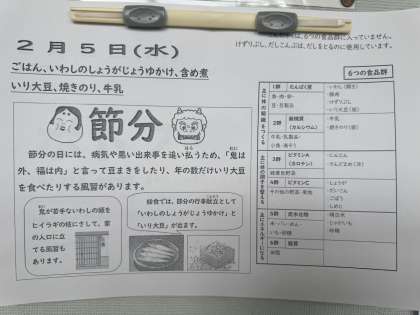 2月5日(水)
ごはん、いわしのしょうがじょうゆかけ、含め煮
いり大豆、焼きのり、牛乳
は、6つの食品群に入っていません。
けずりぶし、だしこんぶは、だしをとるのに使用しています。
節分
節分の日には、病気や悪い出来事を追い払うため、「鬼は
外、福は内」と言って豆まきをしたり、年の数だけいり大豆
を食べたりする風習があります。
鬼が苦手ないわしの頭を
ヒイラギの枝にさして、家
の入口に立
てる風習も
あります。
給食では、節分の行事献立として
「いわしのしょうがじょうゆかけ」と
「いり大豆」が出ます。
6つの食品群
主に体の組織をつくる
1群 たんぱく質
魚・肉・卵・
豆・豆製品
・いわし(開き)
・豚肉
・けずりぶし
・いり大豆
2群 無機質
(カルシウム)
牛乳・乳製品・
小魚・海そう
・牛乳
・焼きのり
主に体の調子を整える
3群 ビタミンA
(カロテン)
緑黄色野菜
・にんじん
4群 ビタミンC
その他の野菜・果物
・しょうが
・だいこん
・ごぼう
・しめじ
主にエネルギーになる
5群 炭水化物
米・パン・めん・
いも・砂糖
・精白米
・じゃがいも
・砂糖
6群 脂質
油脂